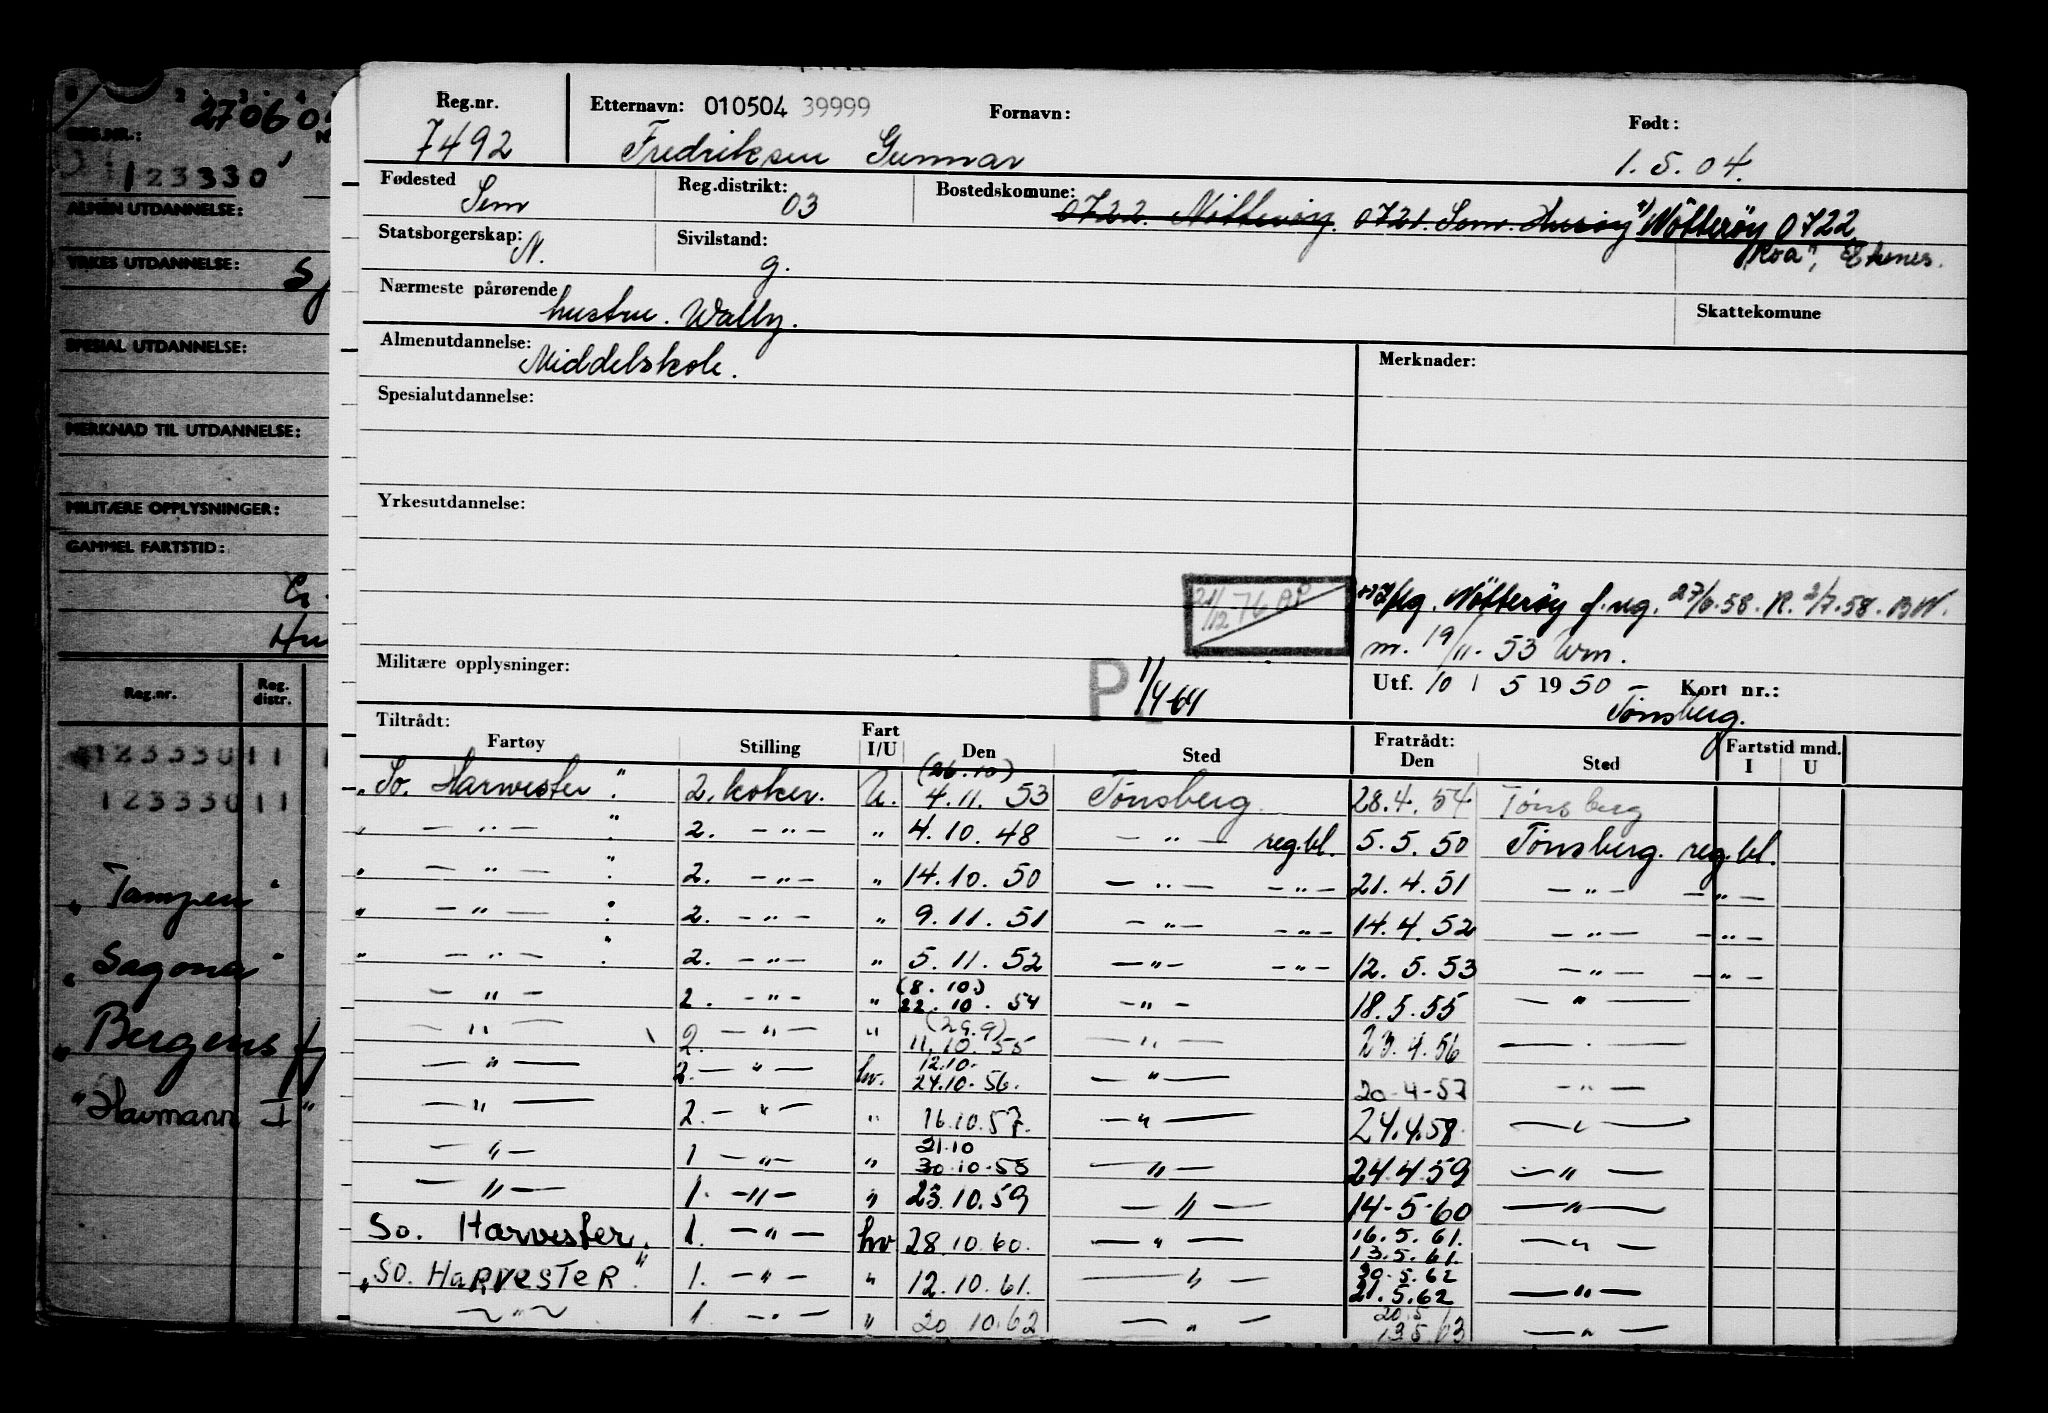 270609
REG.NR.:
123330
ALMEN UTDANNELSE:
YRKES UTDANNELSE:
SPESIAL UTDANNELSE:
MERKNAD TIL UTDANNELSE:
MILITÆRE OPPLYSNINGER:
GAMMEL FARTSTID:
Reg.nr. Reg. distr.
123330 11
123330 11
"Tampen"
"Sagona"
"Bergens
"Havmann I"
Reg.nr. Etternavn: 010504 39999 Fornavn: Født:
7492 Fredriksen Gunnar 1.5.04.
Fødested Sem Reg.distrikt: 03 Bostedskomune: 0722 Nøtterøy. 0721. Sem. Husøy Nøtterøy 0722
Statsborgerskap: N. Sivilstand: g. "Roa", Ekenes.
Nærmeste pårørende hustru. Wally. Skattekomune
Almenutdannelse: Middelskole. Merknader:
Spesialutdannelse:
Yrkesutdannelse:
21/12 76
Nøtterøy f. reg. 27/6.58. R. 2/7.58. BW.
m. 19/11. 53 Wm.
Militære opplysninger: P 1/4 64 Utf. 10 / 5 1950 - Kort nr.:
Tønsberg.
Tiltrådt: Fartøy Stilling Fart I/U Den Sted Fratrådt: Den Sted Fartstid mnd. I U
(26.10)
"So. Harvester" 2. kokk. U. 4.11. 53 Tønsberg. 28.4.54 Tønsberg
" — " — " 2. — " — " 4.10.48 — " — reg.bl. 5.5.50 Tønsberg. reg.bl.
" — " — " 2. — " — " 14.10.50 — " — — " — 21.4.51 — " — — " —
" — " — " 2. — " — " 9.11.51 — " — — " — 14.4.52 — " — — " —
" — " — " 2. — " — " 5.11.52 — " — — " — 12.5.53 — " — — " —
(8.10)
— " — 2. — " — " 22.10.54 — " — 18.5.55 — " —
(29.9)
— " — 2. — " — " 11.10.55 — " — 23.4.56 — " —
12.10.
— " — 2. — " — hv. 24.10.56. — " — 20-4-57 — " —
— " — 2. — " — " 16.10.57. — " — 24.4.58. — " —
21.10
— " — 1 — " — " 30.10-58 — " — 24.4.59 — " —
— " — 1. — " — " 23.10.59 — " — 14-5-60 — " —
16.5.61.
So. Harvester. 1. — " — hv 28.10.60. — " — 13.5.61. — " —
30.5.62
"So. HARVESTER" 1. — " — " 12.10.61. — " — 21.5.62 — " —
20.5
— " — 1. — " — " 20.10.62 — " — 13.5.63 — " —